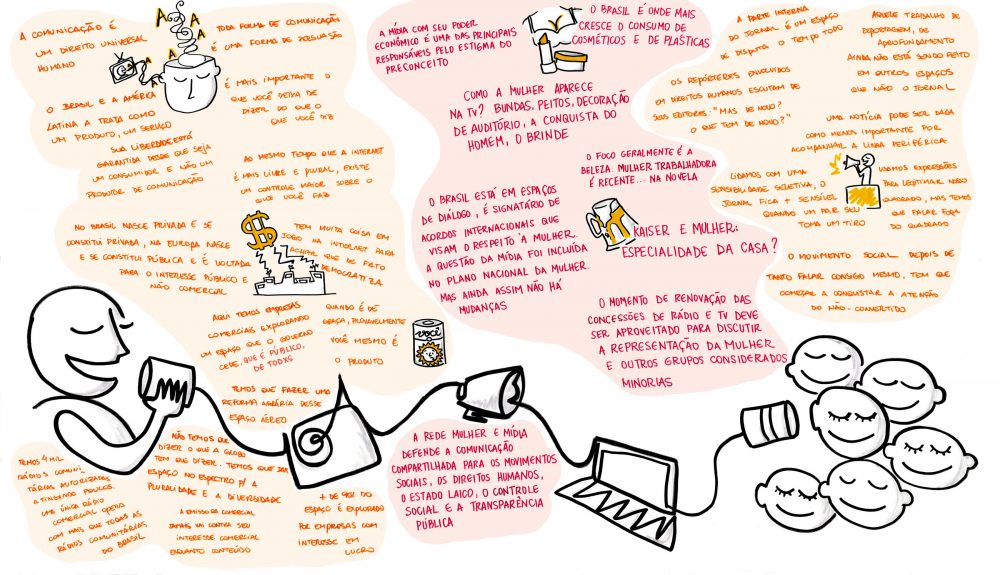 A COMUNICAÇÃO É
UM DIREITO UNIVERSAL
HUMANO
A
A
A
A
A
A
TODA FORMA DE COMUNICAÇÃO
É UMA FORMA DE PERSUASÃO
O BRASIL E A AMÉRICA
LATINA A TRATA COMO
UM PRODUTO, UM SERVIÇO
SUA LIBERDADE ESTÁ
GARANTIDA DESDE QUE SEJA
UM CONSUMIDOR E NÃO UM
PRODUTOR DE COMUNICAÇÃO
É MAIS IMPORTANTE O
QUE VOCÊ DEIXA DE
DIZER DO QUE O
QUE VOCÊ DIZ
AO MESMO TEMPO QUE A INTERNET
É MAIS LIVRE E PLURAL, EXISTE
UM CONTROLE MAIOR SOBRE O
QUE VOCÊ FAZ
NO BRASIL NASCE PRIVADA E SE
CONSTITUI PRIVADA, NA EUROPA NASCE
E SE CONSTITUI PÚBLICA E É VOLTADA
PARA O INTERESSE PÚBLICO E
NÃO COMERCIAL
$
TEM MUITA COISA EM
JOGO NA INTERNET PARA
ACHAR QUE DE FATO
DEMOCRATIZA
AQUI TEMOS EMPRESAS
COMERCIAIS EXPLORANDO
UM ESPAÇO QUE O GOVERNO
CEDE, QUE É PÚBLICO,
DE TODXS
QUANDO É DE
GRAÇA, PROVAVELMENTE
VOCÊ MESMO É
O PRODUTO
você
TEMOS QUE FAZER UMA
REFORMA AGRÁRIA DESSE
ESPAÇO AÉREO
TEMOS 4 MIL
RÁDIOS COMUNI
TÁRIAS AUTORIZADAS
ATINGINDO POUCOS.
UMA ÚNICA RÁDIO
COMERCIAL OPERA
COM MAIS QUE TODAS AS
RÁDIOS COMUNITÁRIAS
DO BRASIL
NÃO TEMOS QUE
DIZER O QUE A GLOBO
TEM QUE DIZER. TEMOS QUE DAR
ESPAÇO NO ESPECTRO P/ A
PLURALIDADE E A DIVERSIDADE
A EMISSORA COMERCIAL
JAMAIS VAI CONTRA SEU
INTERESSE COMERCIAL
ENQUANTO CONTEÚDO
+ DE 90% DO
ESPAÇO É EXPLORADO
POR EMPRESAS COM
INTERESSE EM
LUCRO
A MÍDIA COM SEU PODER
ECONÔMICO É UMA DAS PRINCIPAIS
RESPONSÁVEIS PELO ESTIGMA DO
PRECONCEITO
O BRASIL É ONDE MAIS
CRESCE O CONSUMO DE
COSMÉTICOS E DE PLÁSTICAS
COMO A MULHER APARECE
NA TV? BUNDAS, PEITOS, DECORAÇÃO
DE AUDITÓRIO, A CONQUISTA DO
HOMEM, O BRINDE
O FOCO GERALMENTE É A
BELEZA. MULHER TRABALHADORA
É RECENTE... NA NOVELA
O BRASIL ESTÁ EM ESPAÇOS
DE DIÁLOGO, É SIGNATÁRIO DE
ACORDOS INTERNACIONAIS QUE
VISAM O RESPEITO À MULHER.
A QUESTÃO DA MÍDIA FOI INCLUÍDA
NO PLANO NACIONAL DA MULHER.
MAS AINDA ASSIM NÃO HÁ
MUDANÇAS
KAISER E MULHER:
ESPECIALIDADE DA CASA?
O MOMENTO DE RENOVAÇÃO DAS
CONCESSÕES DE RÁDIO E TV DEVE
SER APROVEITADO PARA DISCUTIR
A REPRESENTAÇÃO DA MULHER
E OUTROS GRUPOS CONSIDERADOS
MINORIAS
A REDE MULHER E MÍDIA
DEFENDE A COMUNICAÇÃO
COMPARTILHADA PARA OS MOVIMENTOS
SOCIAIS, OS DIREITOS HUMANOS,
O ESTADO LAICO, O CONTROLE
SOCIAL E A TRANSPARÊNCIA
PÚBLICA
A PARTE INTERNA
DO JORNAL É UM ESPAÇO
DE DISPUTA O TEMPO TODO
OS REPÓRTERES ENVOLVIDOS
EM DIREITOS HUMANOS ESCUTAM DE
SEUS EDITORES: "MAS, DE NOVO?
O QUE TEM DE NOVO?"
AQUELE TRABALHO DE
REPORTAGEM, DE
APROFUNDAMENTO
AINDA NÃO ESTÁ SENDO FEITO
EM OUTROS ESPAÇOS
QUE NÃO O JORNAL
UMA NOTÍCIA PODE SER DADA
COMO MENOS IMPORTANTE POR
ACOMPANHAR A LINHA PERIFÉRICA
LIDAMOS COM UMA
SENSIBILIDADE SELETIVA, O
JORNAL FICA + SENSÍVEL
QUANDO UM PAR SEU
TOMA UM TIRO
USAMOS EXPRESSÕES
PARA LEGITIMAR NOSSO
QUADRADO, MAS TEMOS
QUE FALAR FORA
DO QUADRADO
O MOVIMENTO SOCIAL DEPOIS DE
TANTO FALAR CONSIGO MESMO, TEM QUE
COMEÇAR A CONQUISTAR A ATENÇÃO
DO NÃO-CONVERTIDO